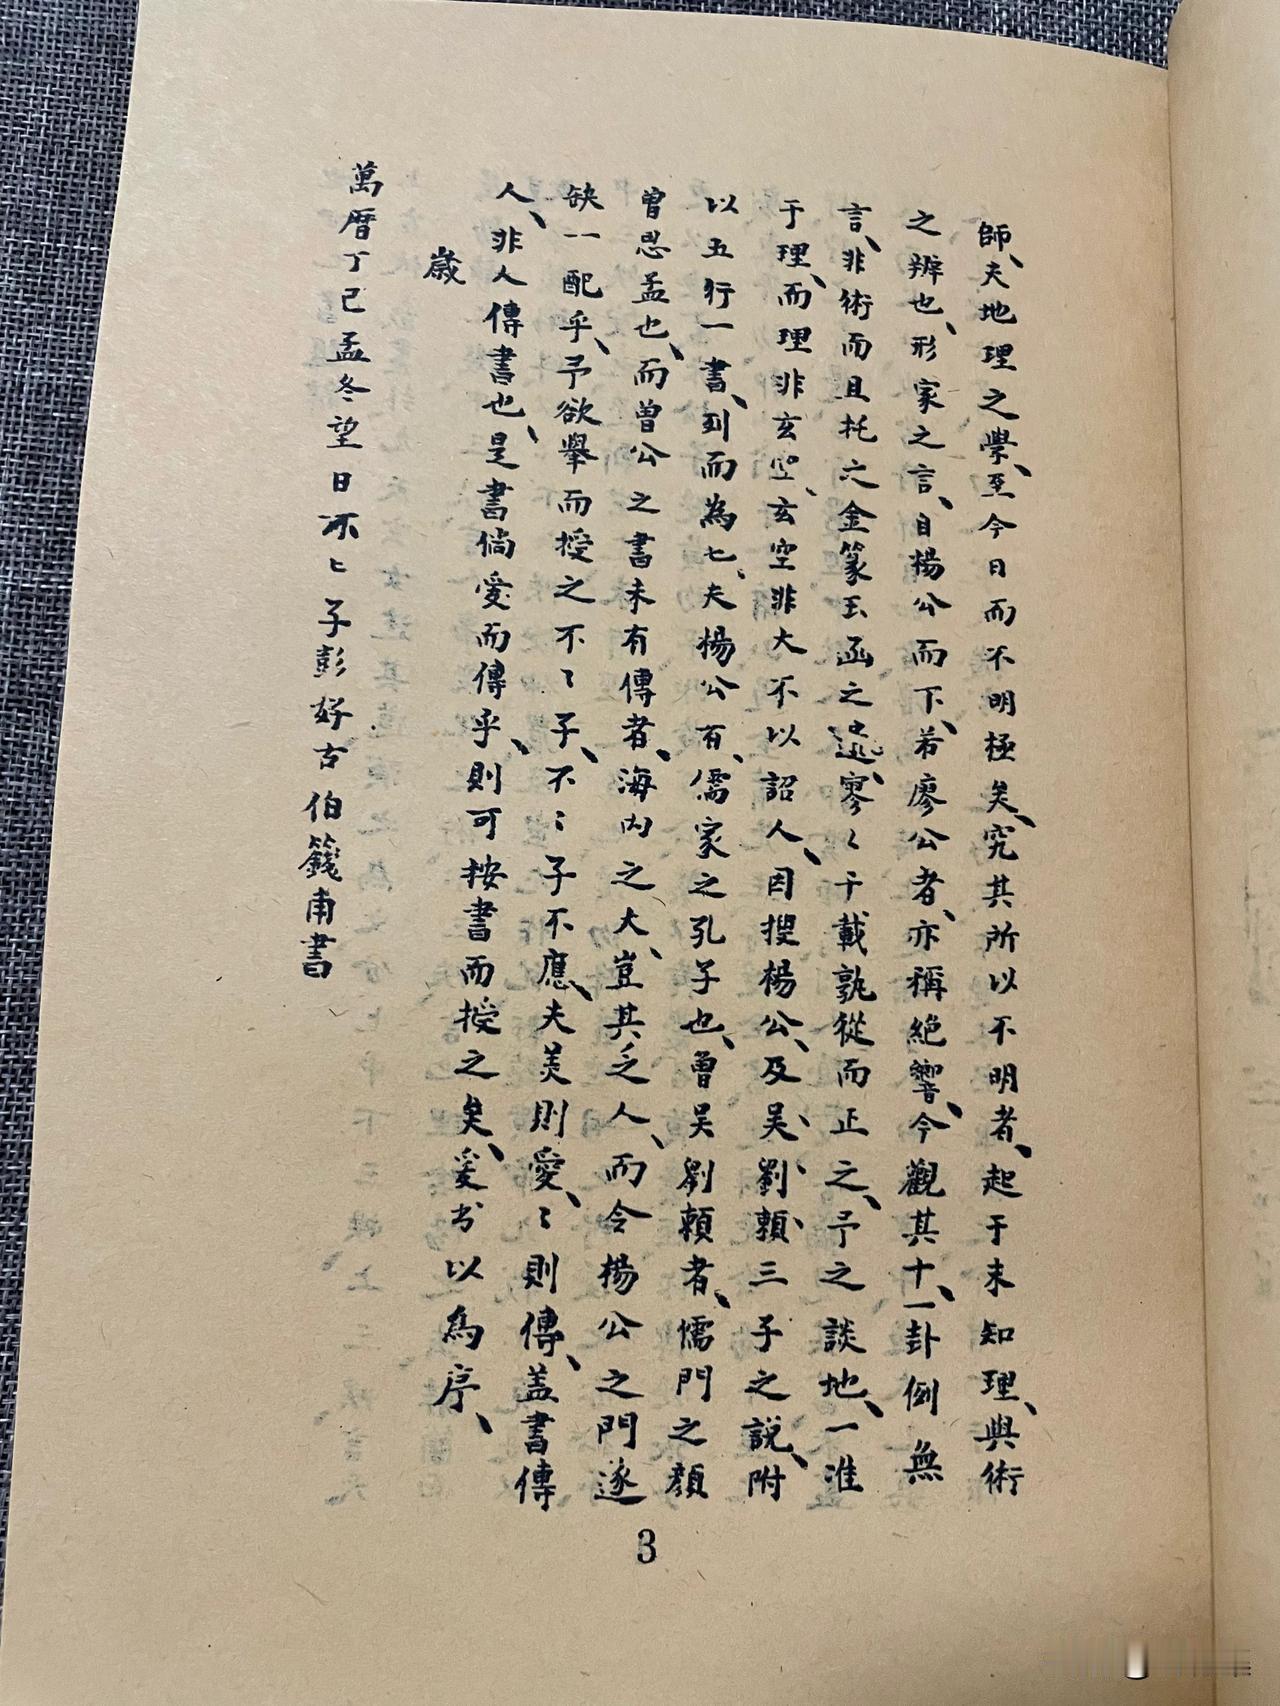 師、夫地理之學、至今日而不明極矣、究其所以不明者、起于未知理、與術
之辨也、形家之言、自楊公而下、若廖公者、亦稱絕響、今觀其十一卦例無
言、非術而且托之金篆玉函之遠、寥〻千載孰從而正之、予之談地、一准
于理、而理非玄空、玄空非大不以詔人、因搜楊公、及吴、劉、賴、三子之說、附
以五行一書、列而為七、夫楊公有、儒家之孔子也、曾吴劉賴者、儒門之顏
曾思孟也、而曾公之書未有傳者、海内之大、豈其乏人、而令楊公之門遂
缺一配乎、予欲舉而授之不〻子、不〻子不應、夫美則愛、〻則傳、盖書傳
人、非人傳書也、是書倘愛而傳乎、則可按書而授之矣、爰书以為序、
歲
萬曆丁巳孟冬望日不〻子彭好古伯籛甫書
3